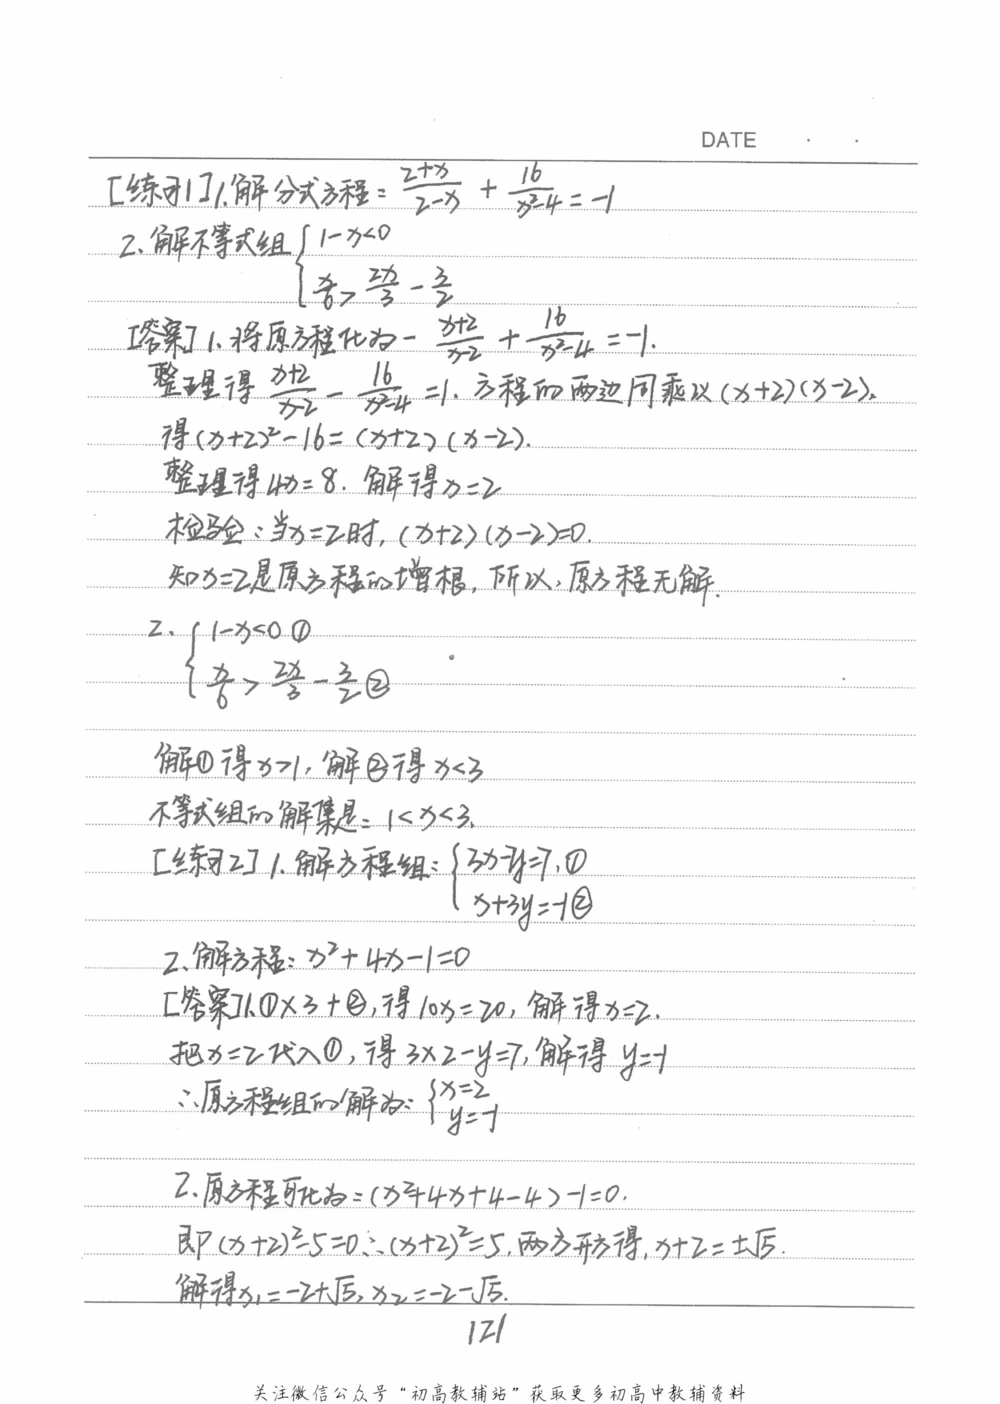 DATE · ·
[练习1]1.解分式方程：(2+x)/(2-x) + 16/(x²-4) = -1
2、解不等式组{1-x<0
x/6 > 2x/3 - 3/2
[答案]1.将原方程化为 - (x+2)/(x-2) + 16/(x²-4) = -1.
整理得 (x+2)/(x-2) - 16/(x²-4) = 1. 方程的两边同乘以(x+2)(x-2),
得(x+2)²-16=(x+2)(x-2).
整理得4x=8. 解得x=2
检验：当x=2时,(x+2)(x-2)=0.
知x=2是原方程的增根, 所以, 原方程无解.
2、{1-x<0 ①
x/6 > 2x/3 - 3/2 ②
解①得x>1, 解②得x<3
不等式组的解集是：1<x<3.
[练习2] 1.解方程组：{3x-y=7, ①
x+3y=-1②
2、解方程：x²+4x-1=0
[答案]1.①×3+②,得10x=20, 解得x=2.
把x=2代入①, 得3×2-y=7, 解得y=-1
∴原方程组的解为：{x=2
y=-1
2.原方程可化为：(x²+4x+4-4)-1=0.
即(x+2)²-5=0∴(x+2)²=5, 两方开方得, x+2=±√5.
解得x₁=-2+√5, x₂=-2-√5.
121
关注微信公众号“初高教辅站”获取更多初高中教辅资料